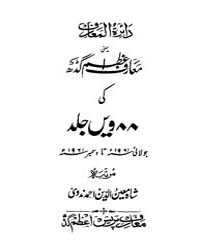 دائرۃ المعارف
یعنی
معارف اعظم گڈھ
کی
۸۸ ویں جلد
جولائی ۱۹۶۱ء تا دسمبر ۱۹۶۱ء
مرتبہ
شاہ معین الدین احمد ندوی
معارف پریس اعظم گڈھ